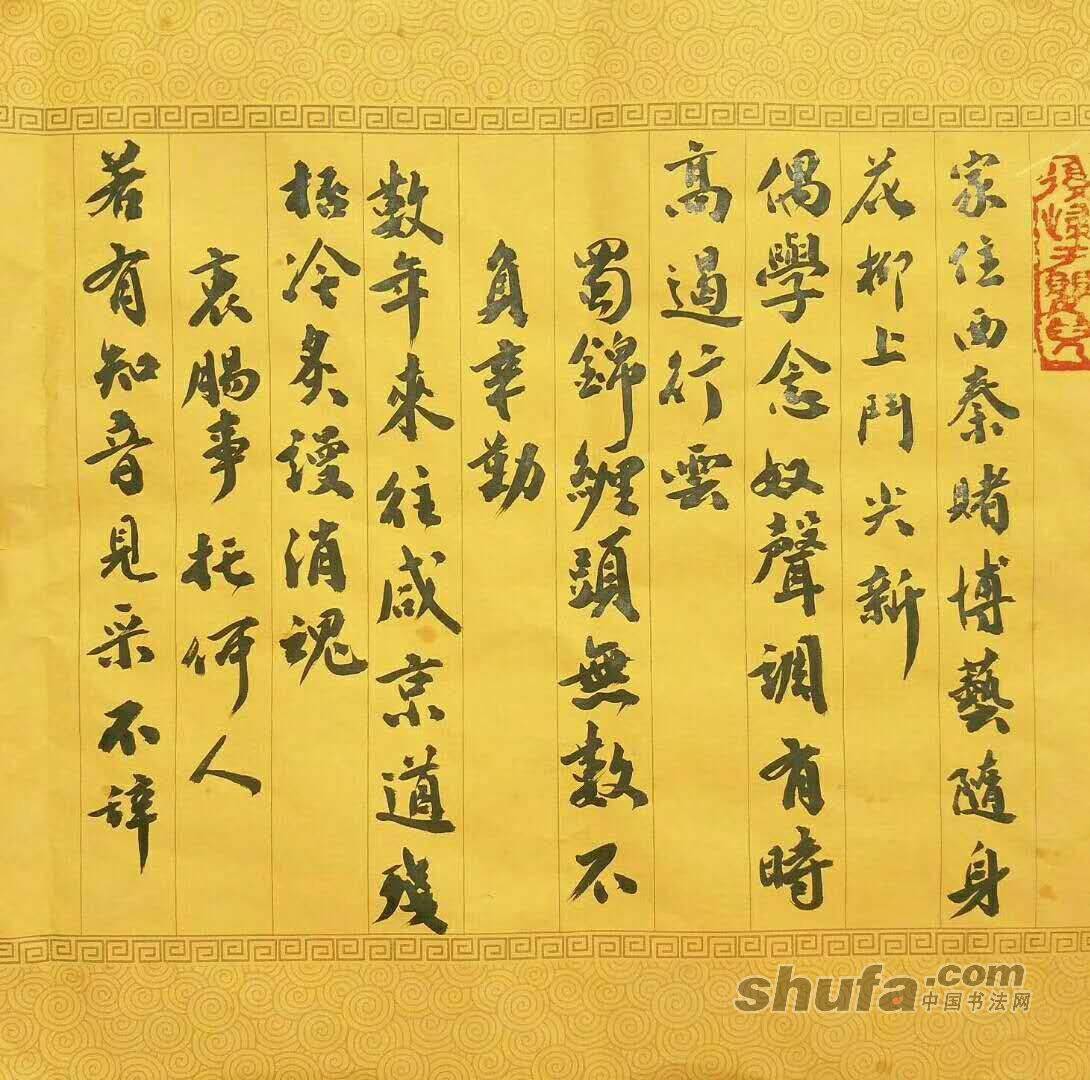 家住西秦賭博藝隨身
花柳上鬥尖新
偶學念奴聲調有時
高遏行雲
蜀錦纏頭無數不
負辛勤
數年來往咸京道殘
桮冷炙謾消魂
衷腸事托何人
若有知音見采不辞
shufa.com
中国书法网